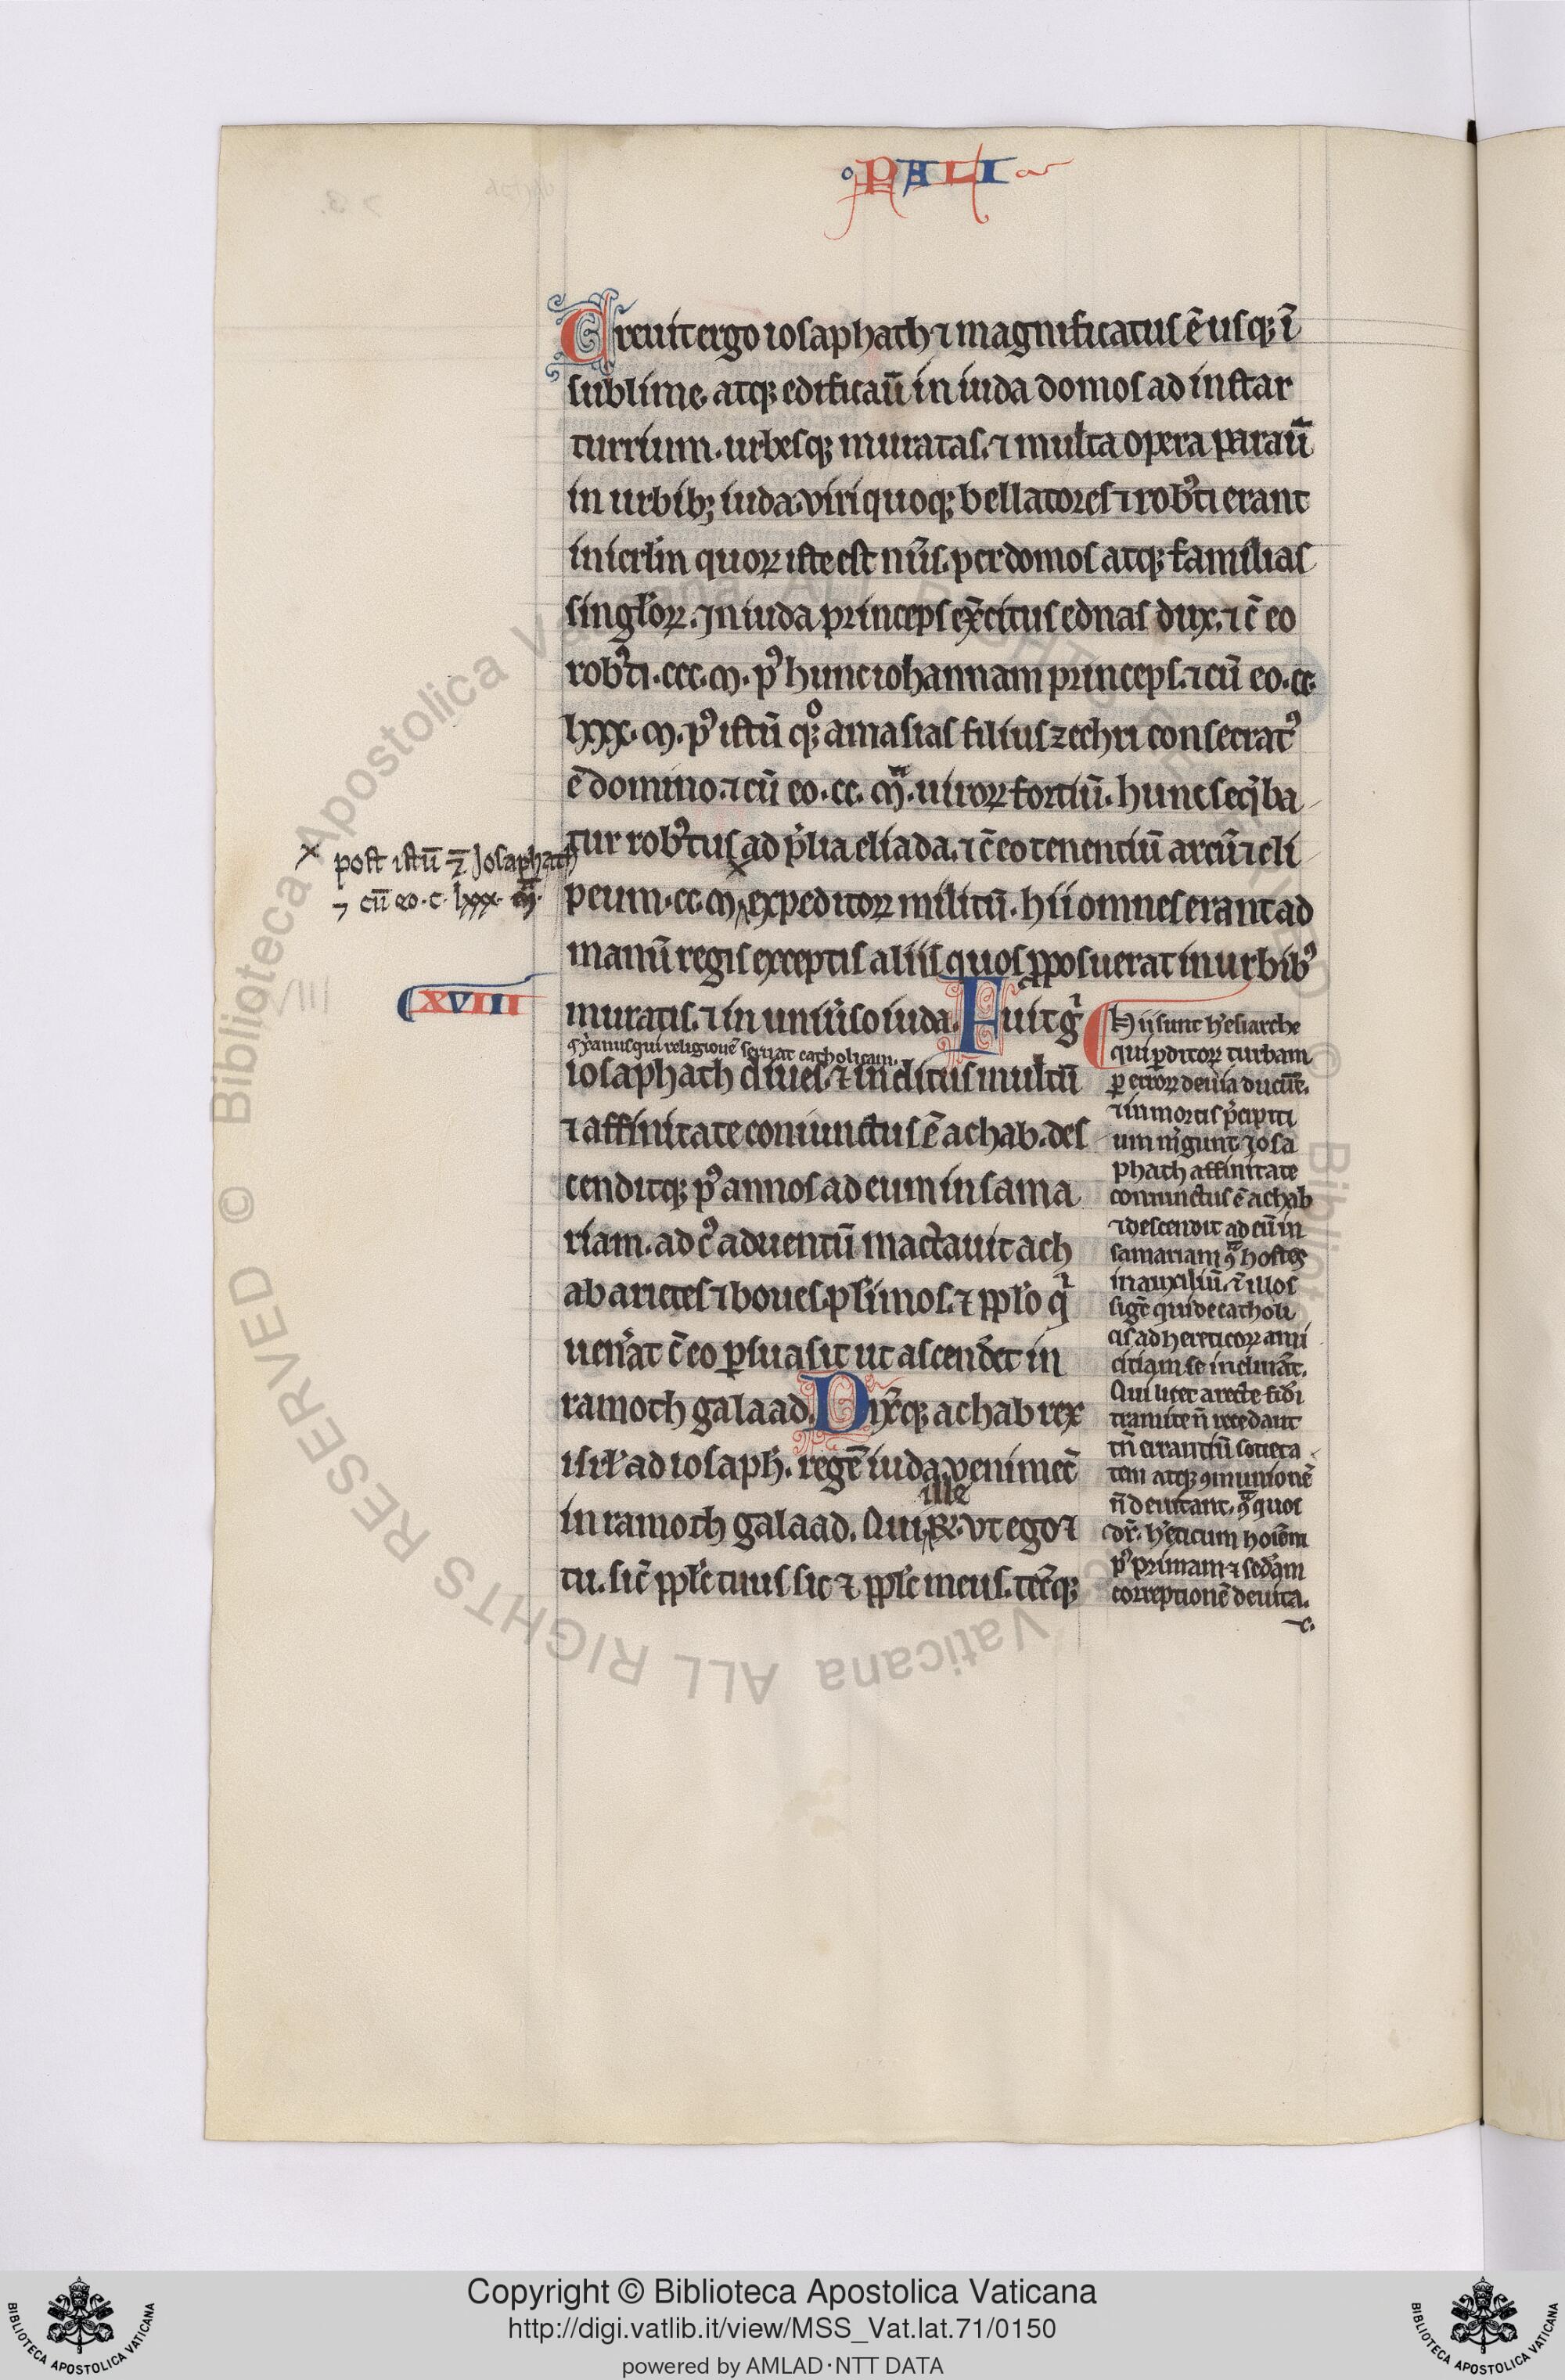 PALI
Creuit ergo iosaphath ⁊ magnificatus ē usq; ī
sublime. atq; edificauīt in iuda domos ad instar
turrium. urbesq; muratas. ⁊ multa opera parauīt
in urbib; iuda. viri quoq; bellatores ⁊ rob'ti erant
in ierl'm quoꝝ iste est nūs. per domos atq; familias
singl'oꝝ. In iuda princeps ex̄citus ednas dux. ⁊ c̄ eo
rob'ti .ccc. M. pꝰ hunc iohannam princeps. ⁊ cū eo .cc.
lxxx. M. pꝰ istū qꝫo amasias filius zechri consecratꝰ
ē domino. ⁊ cū eo .cc. M̄. uiroꝝ fortiū. hunc seq̄ba
tur rob'tus ad p̄lia eliada. ⁊ c̄ eo tenentiū arcū ⁊ cli
peum .cc. M. expeditoꝝ militū. hii omnes erant ad
manū regis exceptis aliis quos p̄posuerat in urbibꝰ
muratis. ⁊ in uniūso iuda. Fuit gͥ
iosaphath diues. ⁊ inclitus multū
⁊ affinitate coniunctus ē achab. des
cenditq; pꝰ annos ad eum in sama
riam. ad cꝰ aduentū mactauit ach
ab arietes ⁊ boues plimos. ⁊ ppl'o qͥ
uen'at c̄ eo ꝑsuasit ut ascenderet in
ramoth galaad. Dix̄q; achab rex
isrl' ad iosaph. regē iuda. veni mec̄
in ramoth galaad. Qui ille R̄. vt ego ⁊
tu. sic̄ ppl's tuus sic ⁊ ppl's meus. tec̄q;
x post istū ⁊ Josaphath
⁊ cū eo .c. lxxx. M̄.
XVIII
xp̄ianus qui religionē seruat catholicam.
Hii sunt h'esiarche
qui ꝑditoꝝ turbam
ꝑ erroꝝ deuia ducūt.
⁊ in mortis p̄cipiti
um m̄gunt. Iosa
phath affinitate
coniunctus ē achab
⁊ descendit ad eū in
samariam ꝯͣ hostes
in auxiliū. ⁊ illos
sig̅t qui de catholi
cis ad hereticoꝝ ami
citiam se inclināt.
Qui licet a recte fidei
tramite n̄ recedant
tn̄ errantiū societa
tem atq; ꝯmunionē
n̄ deuitant. ꝯͣ quos
dr̄. h'eticum hoīem
pꝰ primam ⁊ sedam
correptionē deuita.
Copyright © Biblioteca Apostolica Vaticana
http://digi.vatlib.it/view/MSS_Vat.lat.71/0150
powered by AMLAD·NTT DATA
BIBLIOTECA APOSTOLICA VATICANA
BIBLIOTECA APOSTOLICA VATICANA
© Biblioteca Apostolica Vaticana ALL RIGHTS RESERVED